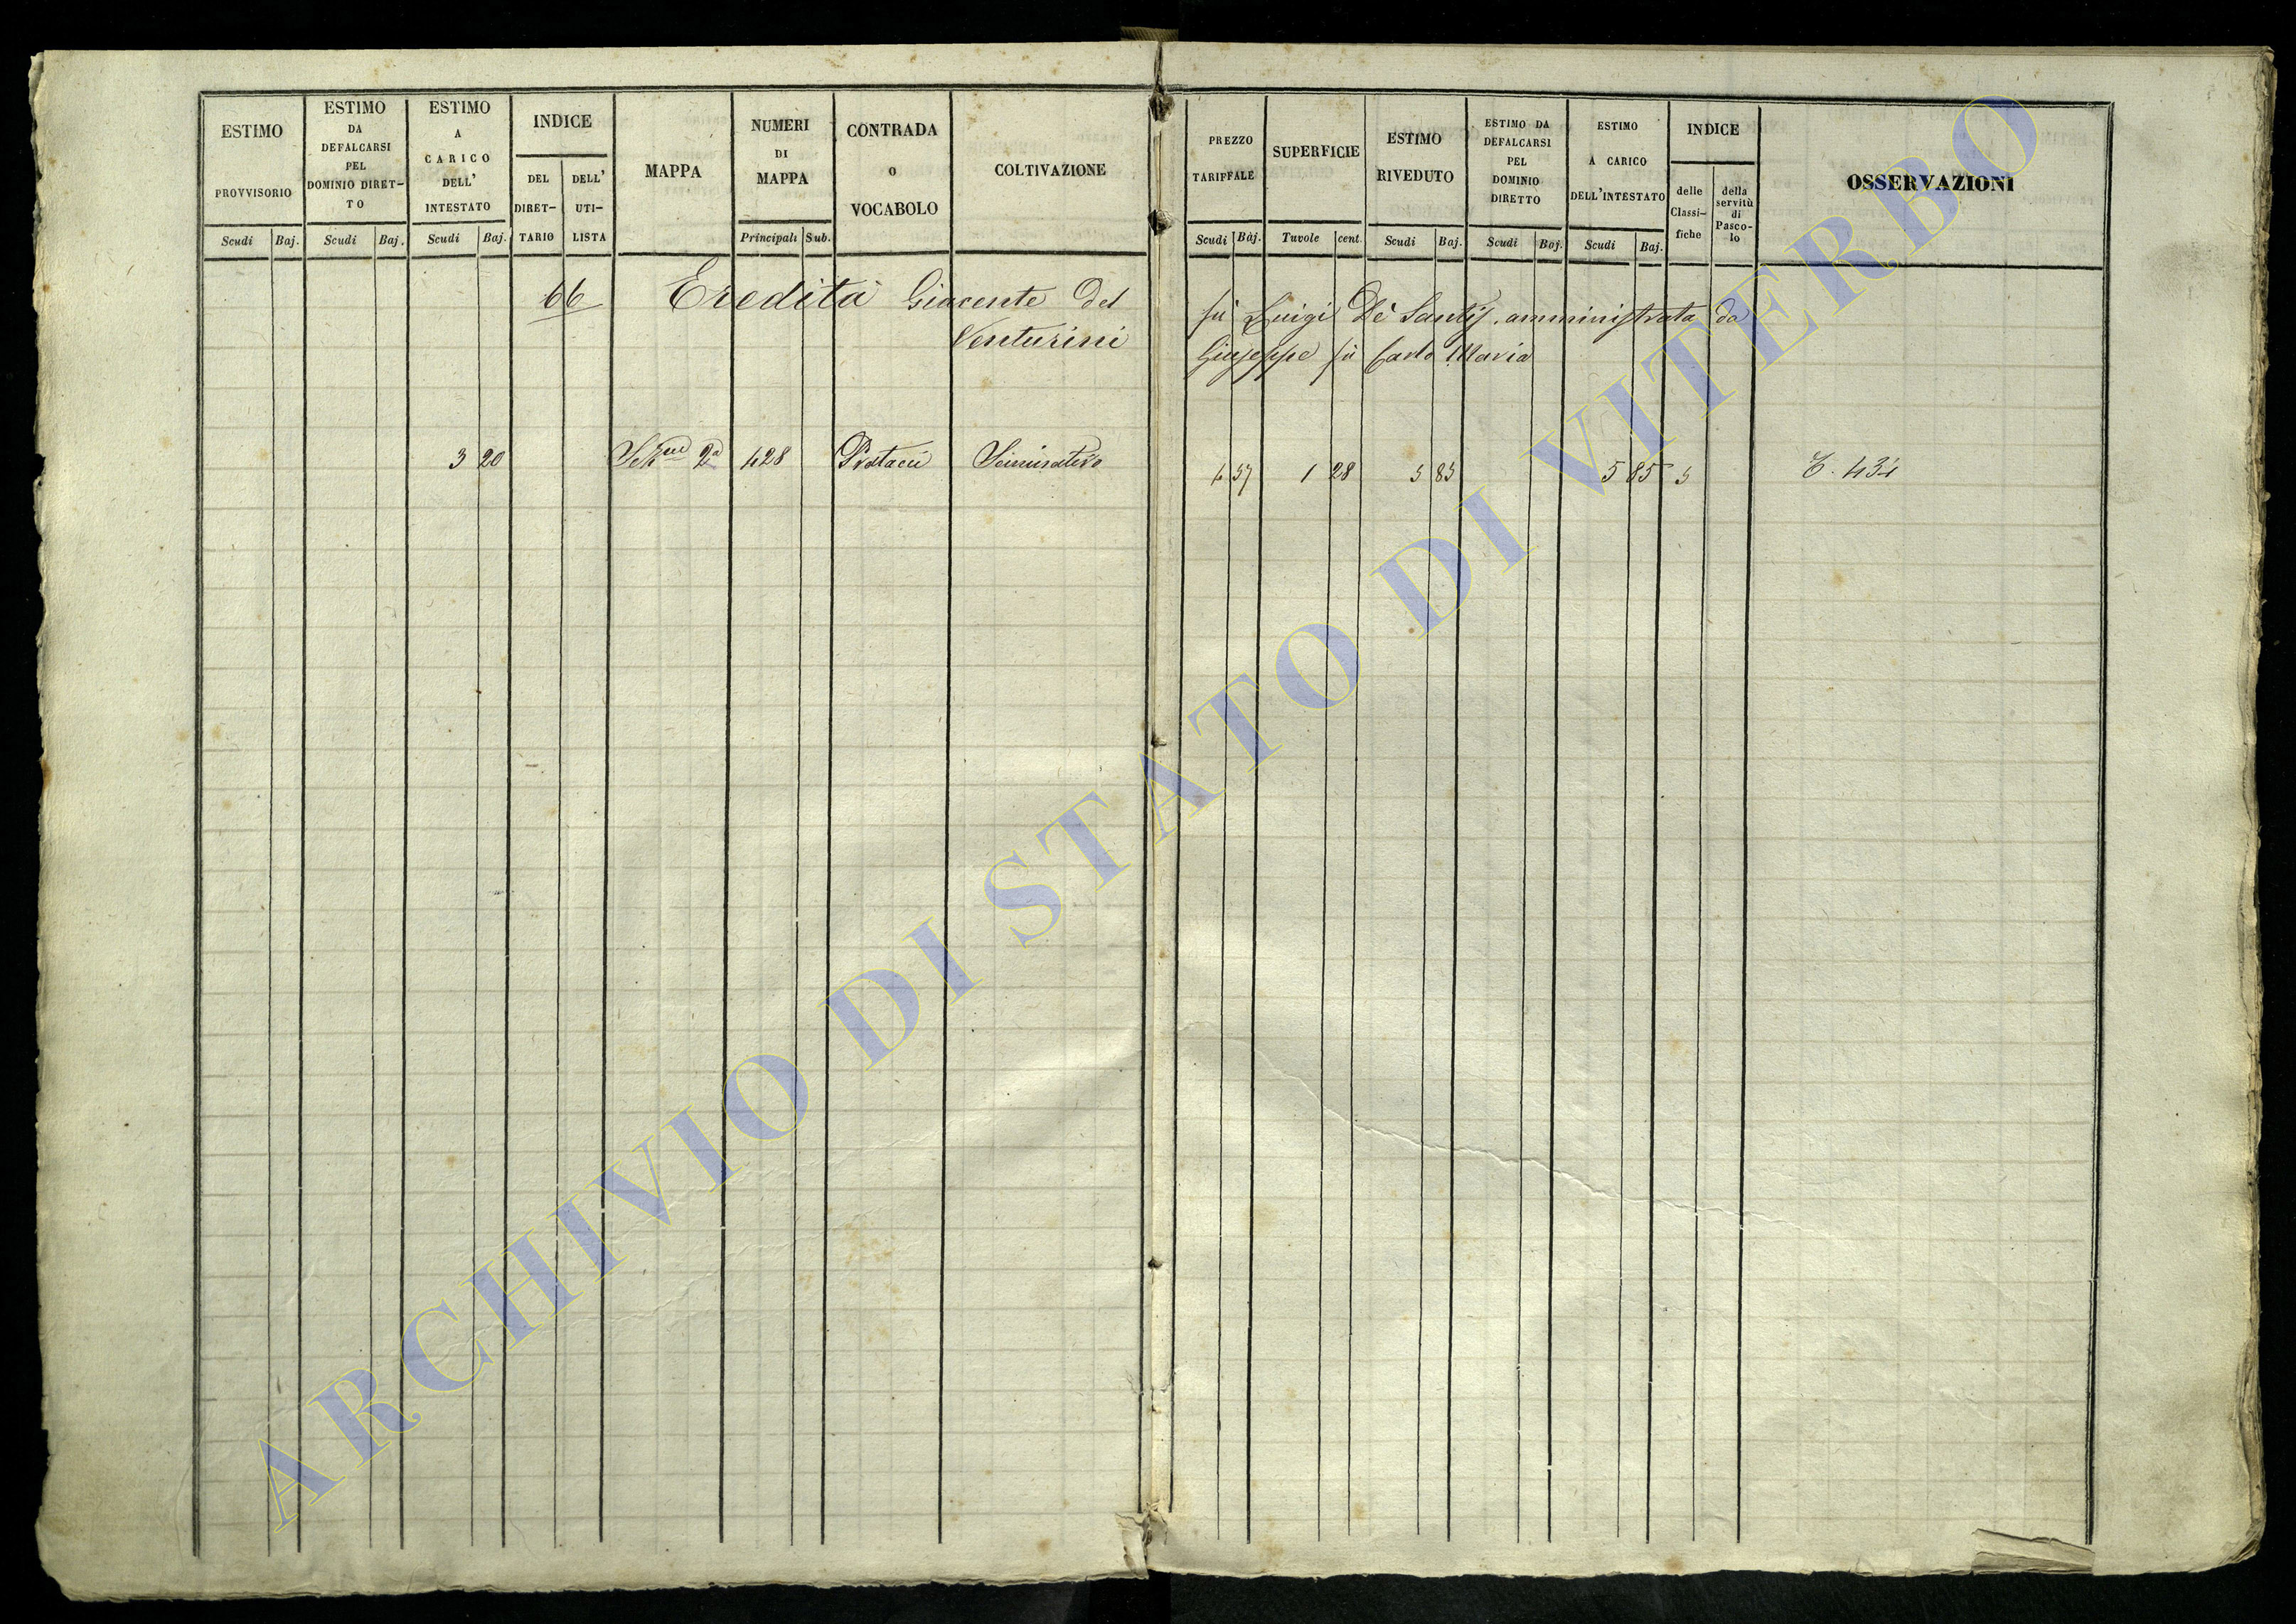 ESTIMO PROVVISORIO
Scudi Baj.
ESTIMO DA DEFALCARSI PEL DOMINIO DIRET-TO
Scudi Baj.
ESTIMO A CARICO DELL' INTESTATO
Scudi Baj.
INDICE
DEL DIRET-TARIO
DELL' UTI-LISTA
MAPPA
NUMERI DI MAPPA
Principali Sub.
CONTRADA O VOCABOLO
COLTIVAZIONE
PREZZO TARIFFALE
Scudi Baj.
SUPERFICIE
Tavole cent.
ESTIMO RIVEDUTO
Scudi Baj.
ESTIMO DA DEFALCARSI PEL DOMINIO DIRETTO
Scudi Baj.
ESTIMO A CARICO DELL'INTESTATO
Scudi Baj.
INDICE
delle Classi-fiche
della servitù di Pasco-lo
OSSERVAZIONI
66 Eredità Giacente del fù Luigi De Santis amministrata da
Venturini Giuseppe fù Carlo Maria
3 20 2a 428 Seminativo 4 57 1 28 5 85 5 85 5 434
ARCHIVIO DI STATO DI VITERBO